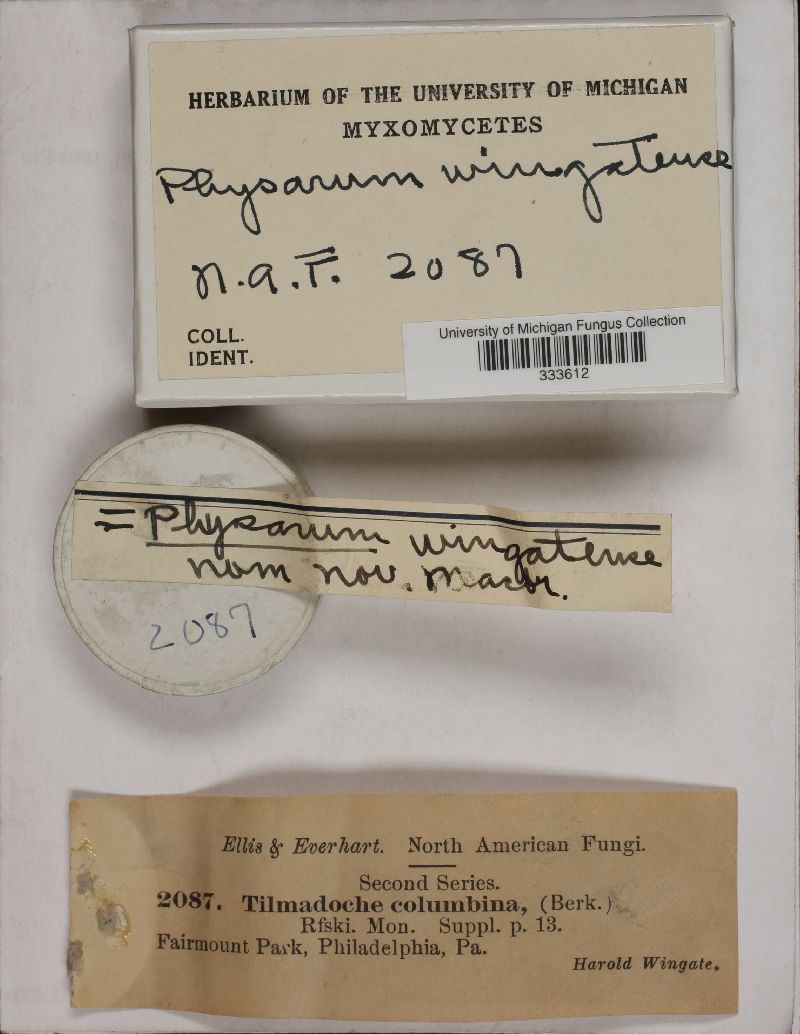 HERBARIUM OF THE UNIVERSITY OF MICHIGAN
MYXOMYCETES
Physarum wingatense
N.A.F. 2087
COLL.
IDENT.
University of Michigan Fungus Collection
333612
= Physarum wingatense
nom nov. Macbr.
2087
Ellis & Everhart. North American Fungi.
Second Series.
2087. Tilmadoche columbina, (Berk.)
Rfski. Mon. Suppl. p. 13.
Fairmount Park, Philadelphia, Pa.
Harold Wingate.